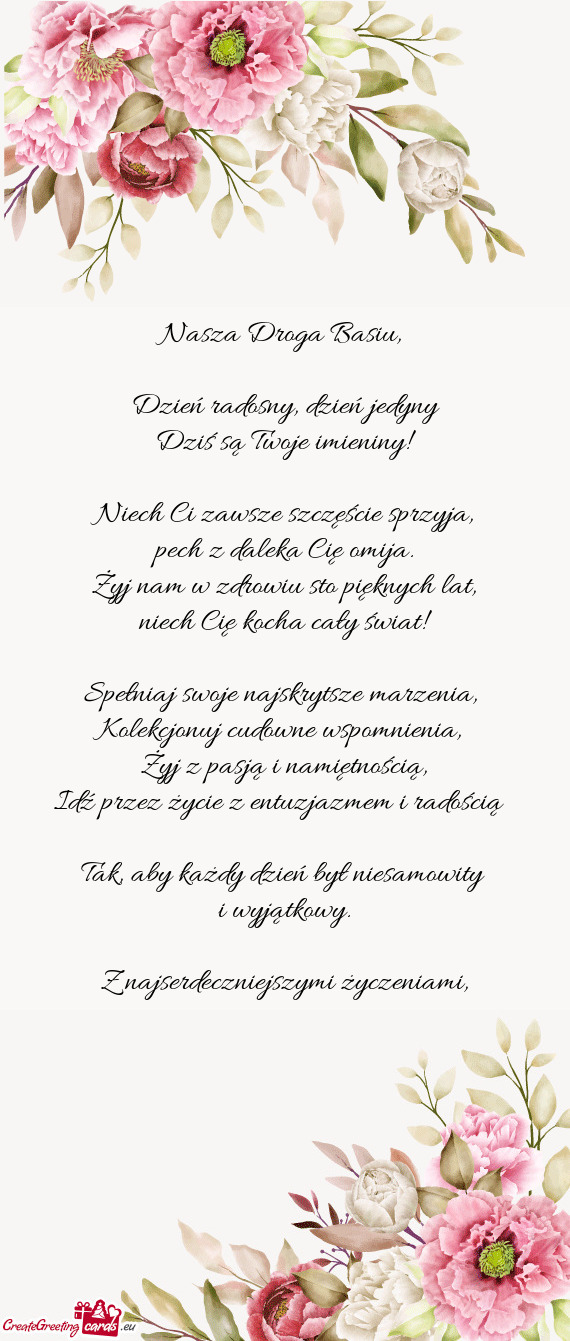 Nasza Droga Basiu,
Dzień radosny, dzień jedyny
Dziś są Twoje imieniny!
Niech Ci zawsze szczęście sprzyja,
pech z daleka Cię omija.
Żyj nam w zdrowiu sto pięknych lat,
niech Cię kocha cały świat!
Spełniaj swoje najskrytsze marzenia,
Kolekcjonuj cudowne wspomnienia,
Żyj z pasją i namiętnością,
Idź przez życie z entuzjazmem i radością
Tak, aby każdy dzień był niesamowity
i wyjątkowy.
Z najserdeczniejszymi życzeniami,
CreateGreeting cards .eu